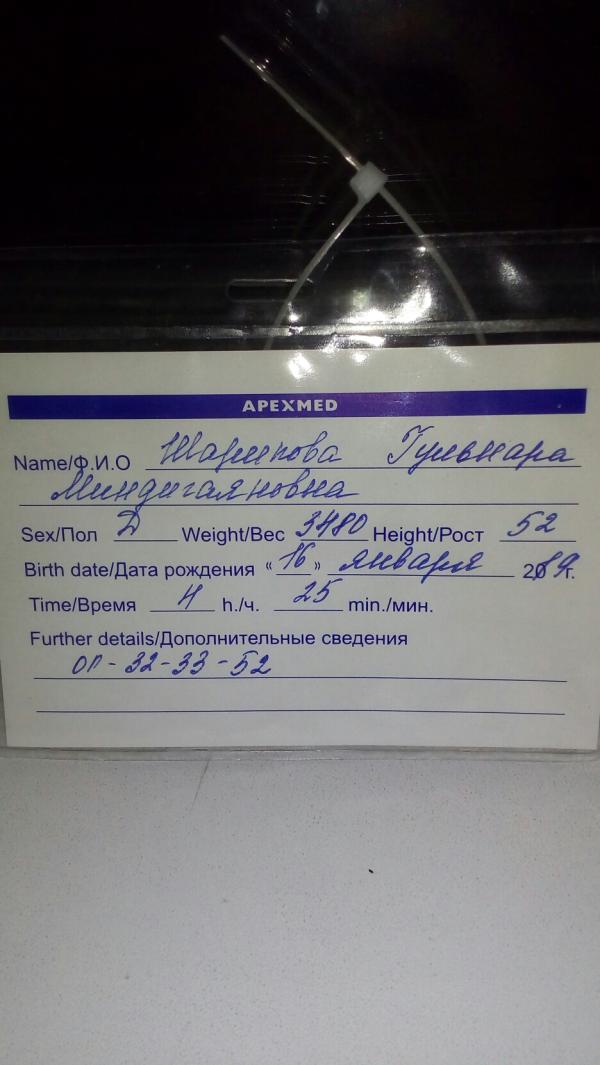 APEXMED
Name/Ф.И.О Шарипова Гульнара
Миндигаяновна
Sex/Пол Д Weight/Вес 3480 Height/Рост 52
Birth date/Дата рождения « 16 » января 2019г.
Time/Время 4 h./ч. 25 min./мин.
Further details/Дополнительные сведения
ОП-32-33-52